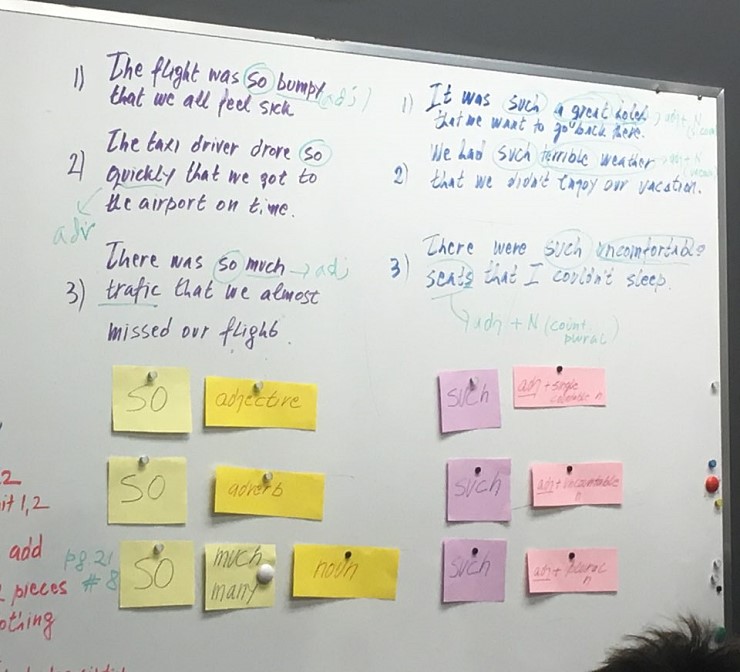 1) The flight was so bumpy (adj)
that we all feel sick
2) The taxi driver drove so
quickly that we got to
the airport on time.
adv
3) There was so much → adj
trafic that we almost
missed our flight.
1) It was such a great hotel → adj + N
that we want to go back there.
2) We had such terrible weather → adj + N
that we didn't enjoy our vacation.
3) There were such uncomfortable
seats that I couldn't sleep.
adj + N (count
plural)
so adjective
so adverb
so much
many noun
such adj + single
countable n
such adj + uncountable
n
such adj + plural
n
2
it 1, 2
add
pg. 21
# 8
pieces
othing